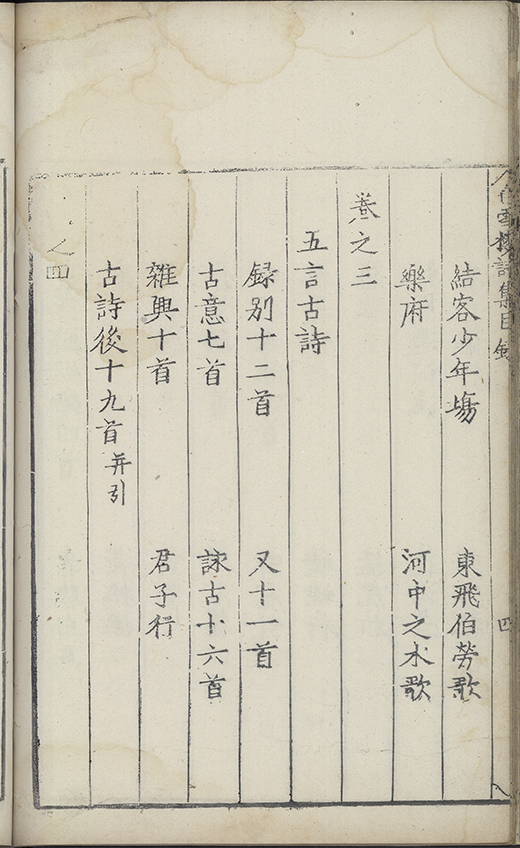 白雪樓詩集目錄
四
結客少年場　東飛伯勞歌
樂府　河中之水歌
卷之三
五言古詩
録别十二首　又十一首
古意七首　詠古十六首
雜興十首　君子行
古詩後十九首并引
之四